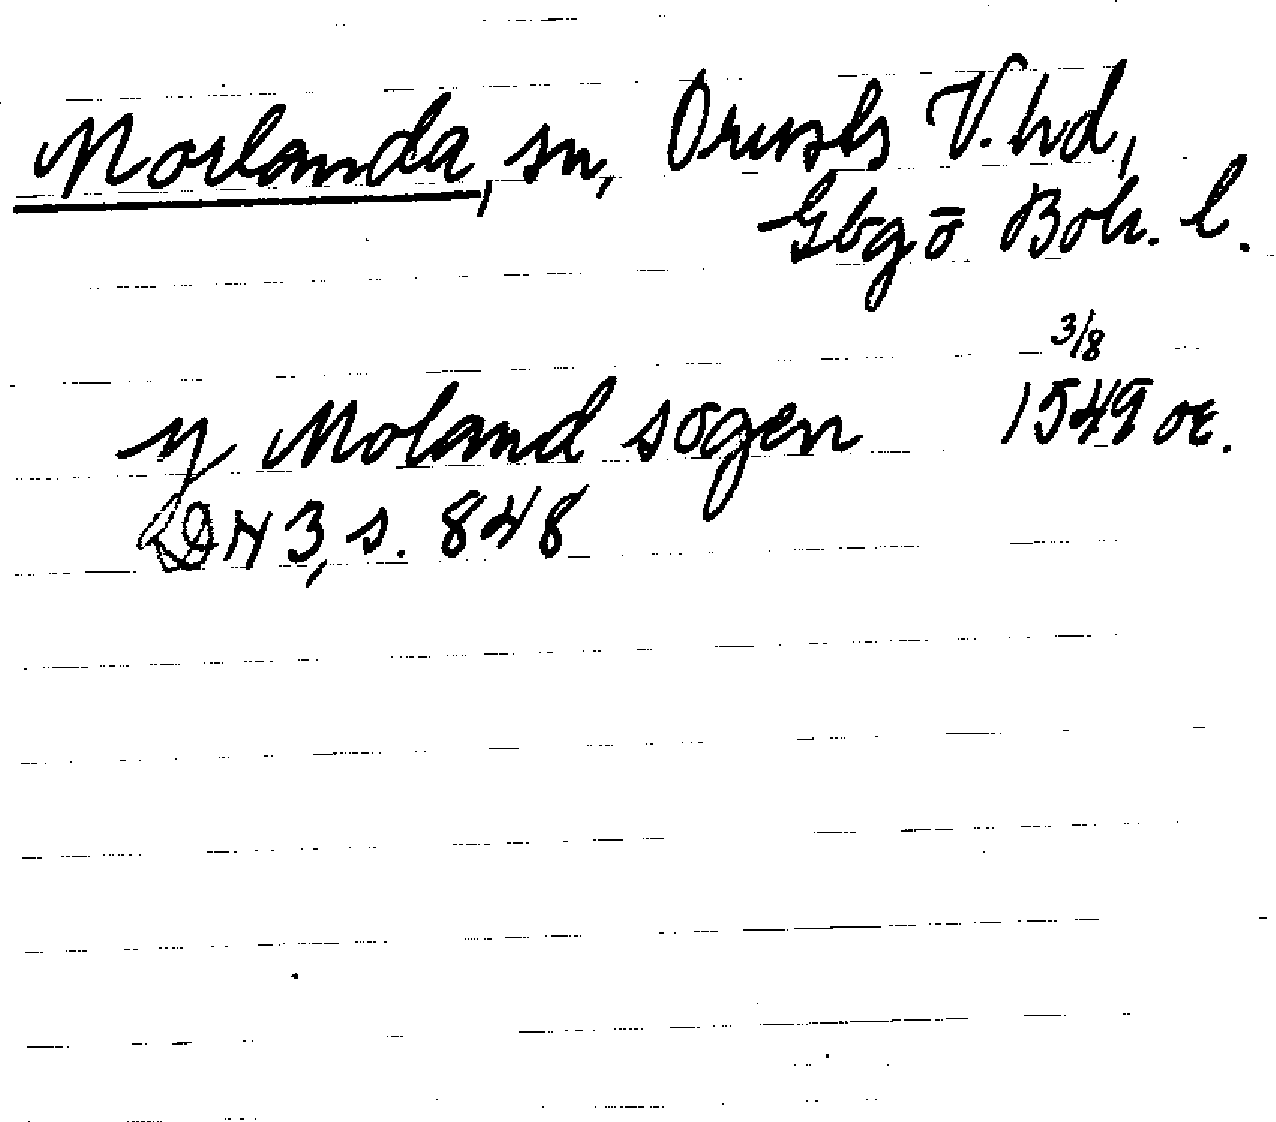 Morlanda, sn, Orusts V. hd,
Gbgo Boh. l.
3/8
y Moland sogen 1549 or.
DN 3, s. 848